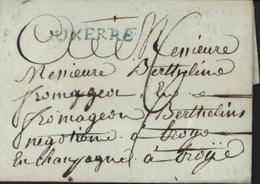 AUXERRE
A Messieure
Messieure Berthelins
fromageon
fromageon Berthelins
negotiant à troyes
En champagne à troÿe